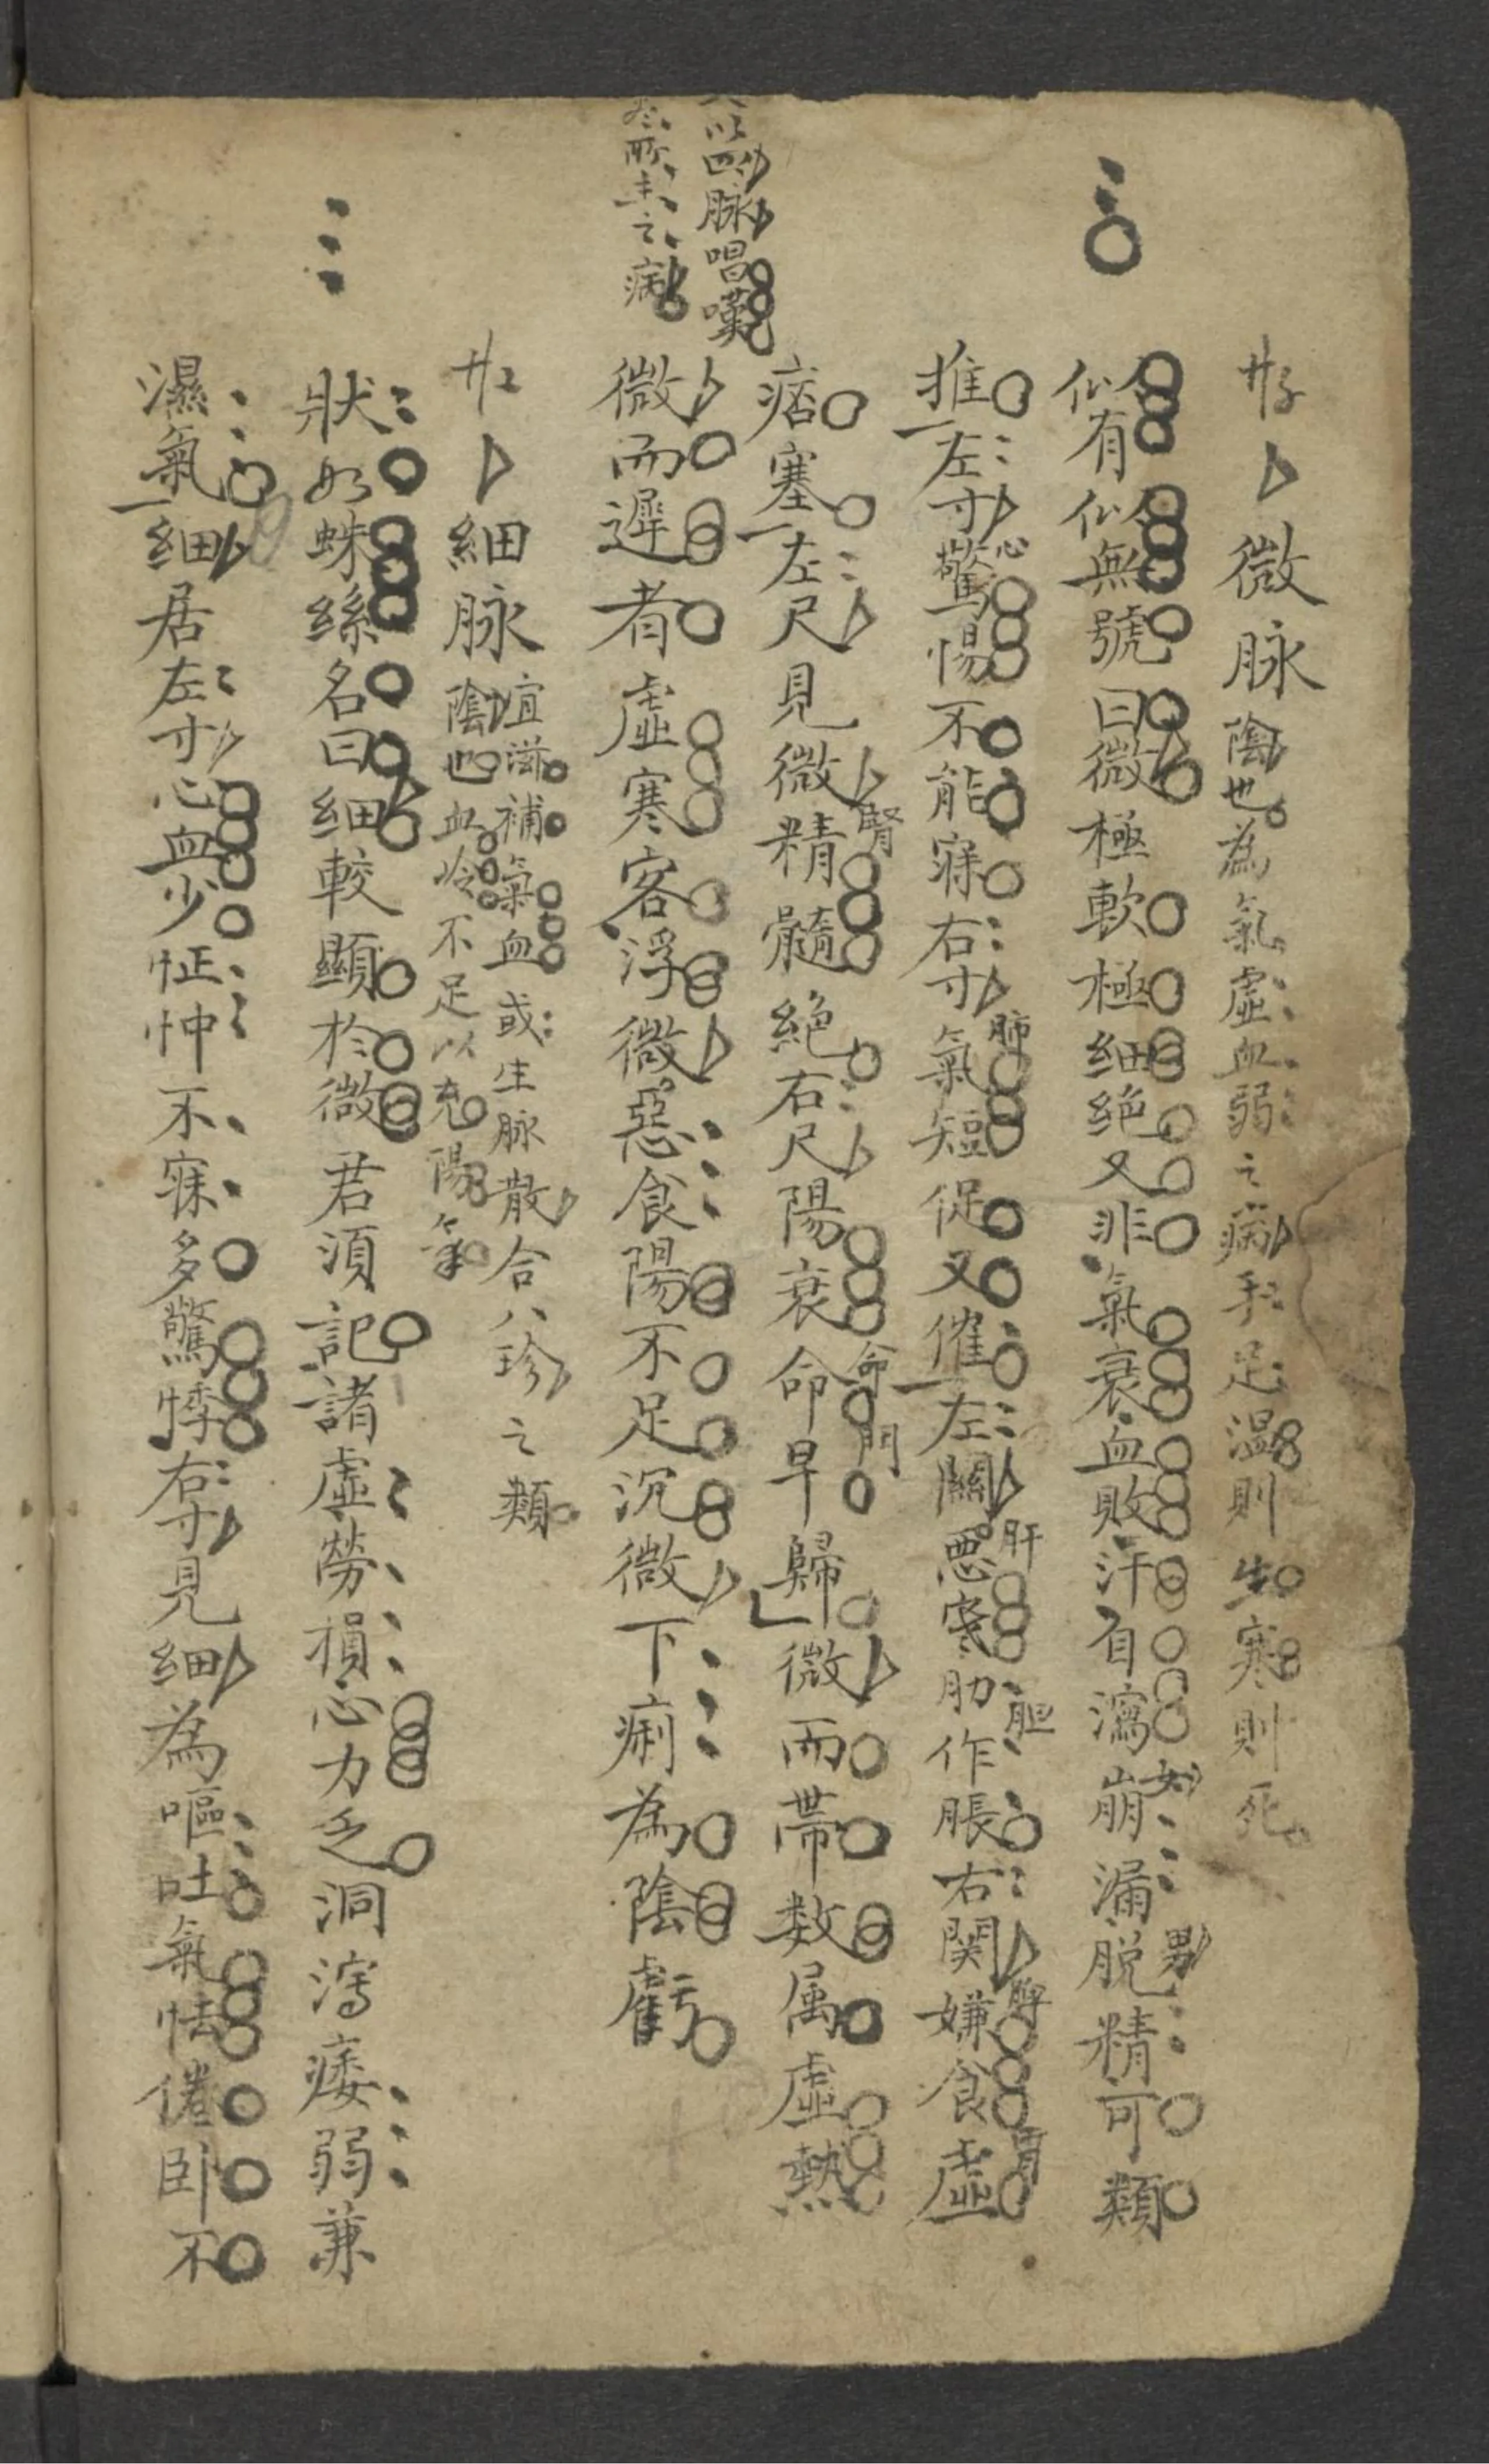 微脉陰也為氣虛血弱之病手足溫則生寒則死
似有似無號曰微極軟極細絕又非氣衰血敗汗自瀉崩漏脱精可類
女
男
推左寸驚惕不能寐右寸氣短促又催左關惡寒肋作脹右関嫌食虛
心
肺
肝
胆
脾
胃
痞塞左尺見微精髓絕右尺陽衰命早歸微而帶数属虛熱
腎
命門
以四脉唱嘆
所主之病
微而遲者虛寒客浮微惡食陽不足沉微下痢為陰虧
細脉宜滋補氣血或生脉散合八珍之類
陰也血冷不足以充陽氣
狀如蛛絲名曰細較顯於微君須記諸虛勞損心力乏洞瀉痿弱兼
濕氣細居左寸心血少怔忡不寐多驚悸右寸見細為嘔吐氣怯倦卧不